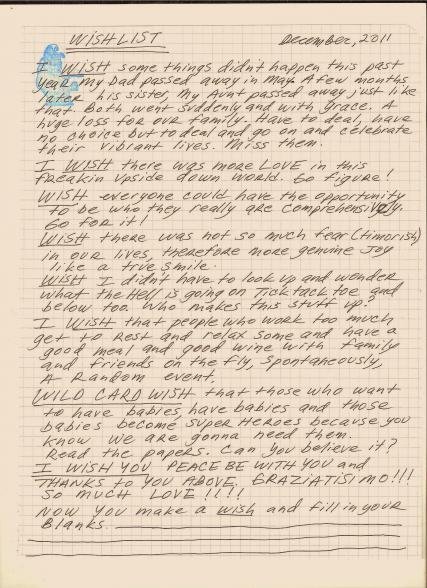 WISHLIST
December, 2011
I WISH some things didn't happen this past
year my Dad passed away in May. A few months
later his sister, My Aunt passed away just like
that. Both went suddenly and with Grace. A
huge loss for our family. Have to deal, have
no choice but to deal and go on and celebrate
their vibrant lives. Miss them.
I WISH there was more LOVE in this
freakin upside down world. Go figure!
WISH everyone could have the opportunity
to be who they really are comprehensively.
Go for it!
WISH there was not so much fear (timorish)
in our lives, therefore more genuine Joy
like a true smile.
WISH I didn't have to look up and wonder
what the Hell is going on Tick tack toe and
below too. Who makes this stuff up?
I WISH that people who work too much
get to Rest and relax some and have a
good meal and good wine with family
and friends on the fly, spontaneously,
A Random event.
WILD CARD WISH that those who want
to have babies, have babies and those
babies become Super Heroes because you
know we are gonna need them.
Read the papers. Can you believe it?
I WISH YOU PEACE BE WITH YOU and
THANKS TO YOU ABOVE. GRAZIATISIMO!!!
SO MUCH LOVE !!!!
NOW YOU make a wish and fill in your
Blanks.